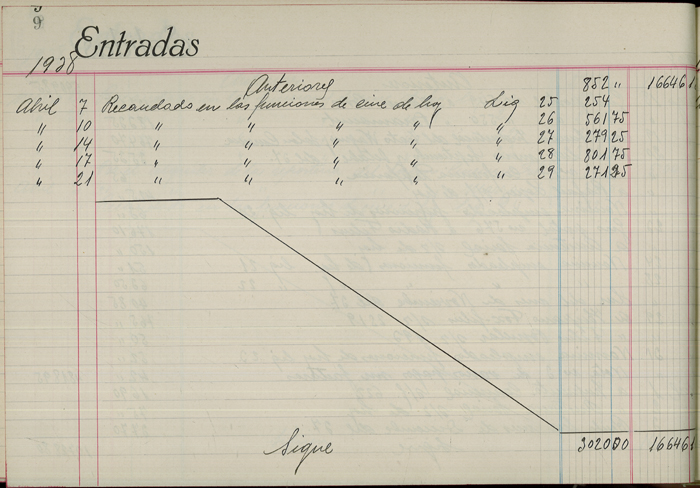 9
Entradas
1928
Anteriores 852 " 166461
Abril 7 Recaudado en las funciones de cine de hoy Lig 25 254
" 10 " " " " " 26 561 75
" 14 " " " " " 27 279 25
" 17 " " " " " 28 801 75
" 21 " " " " " 29 271 25
Sigue 3020 00 166461